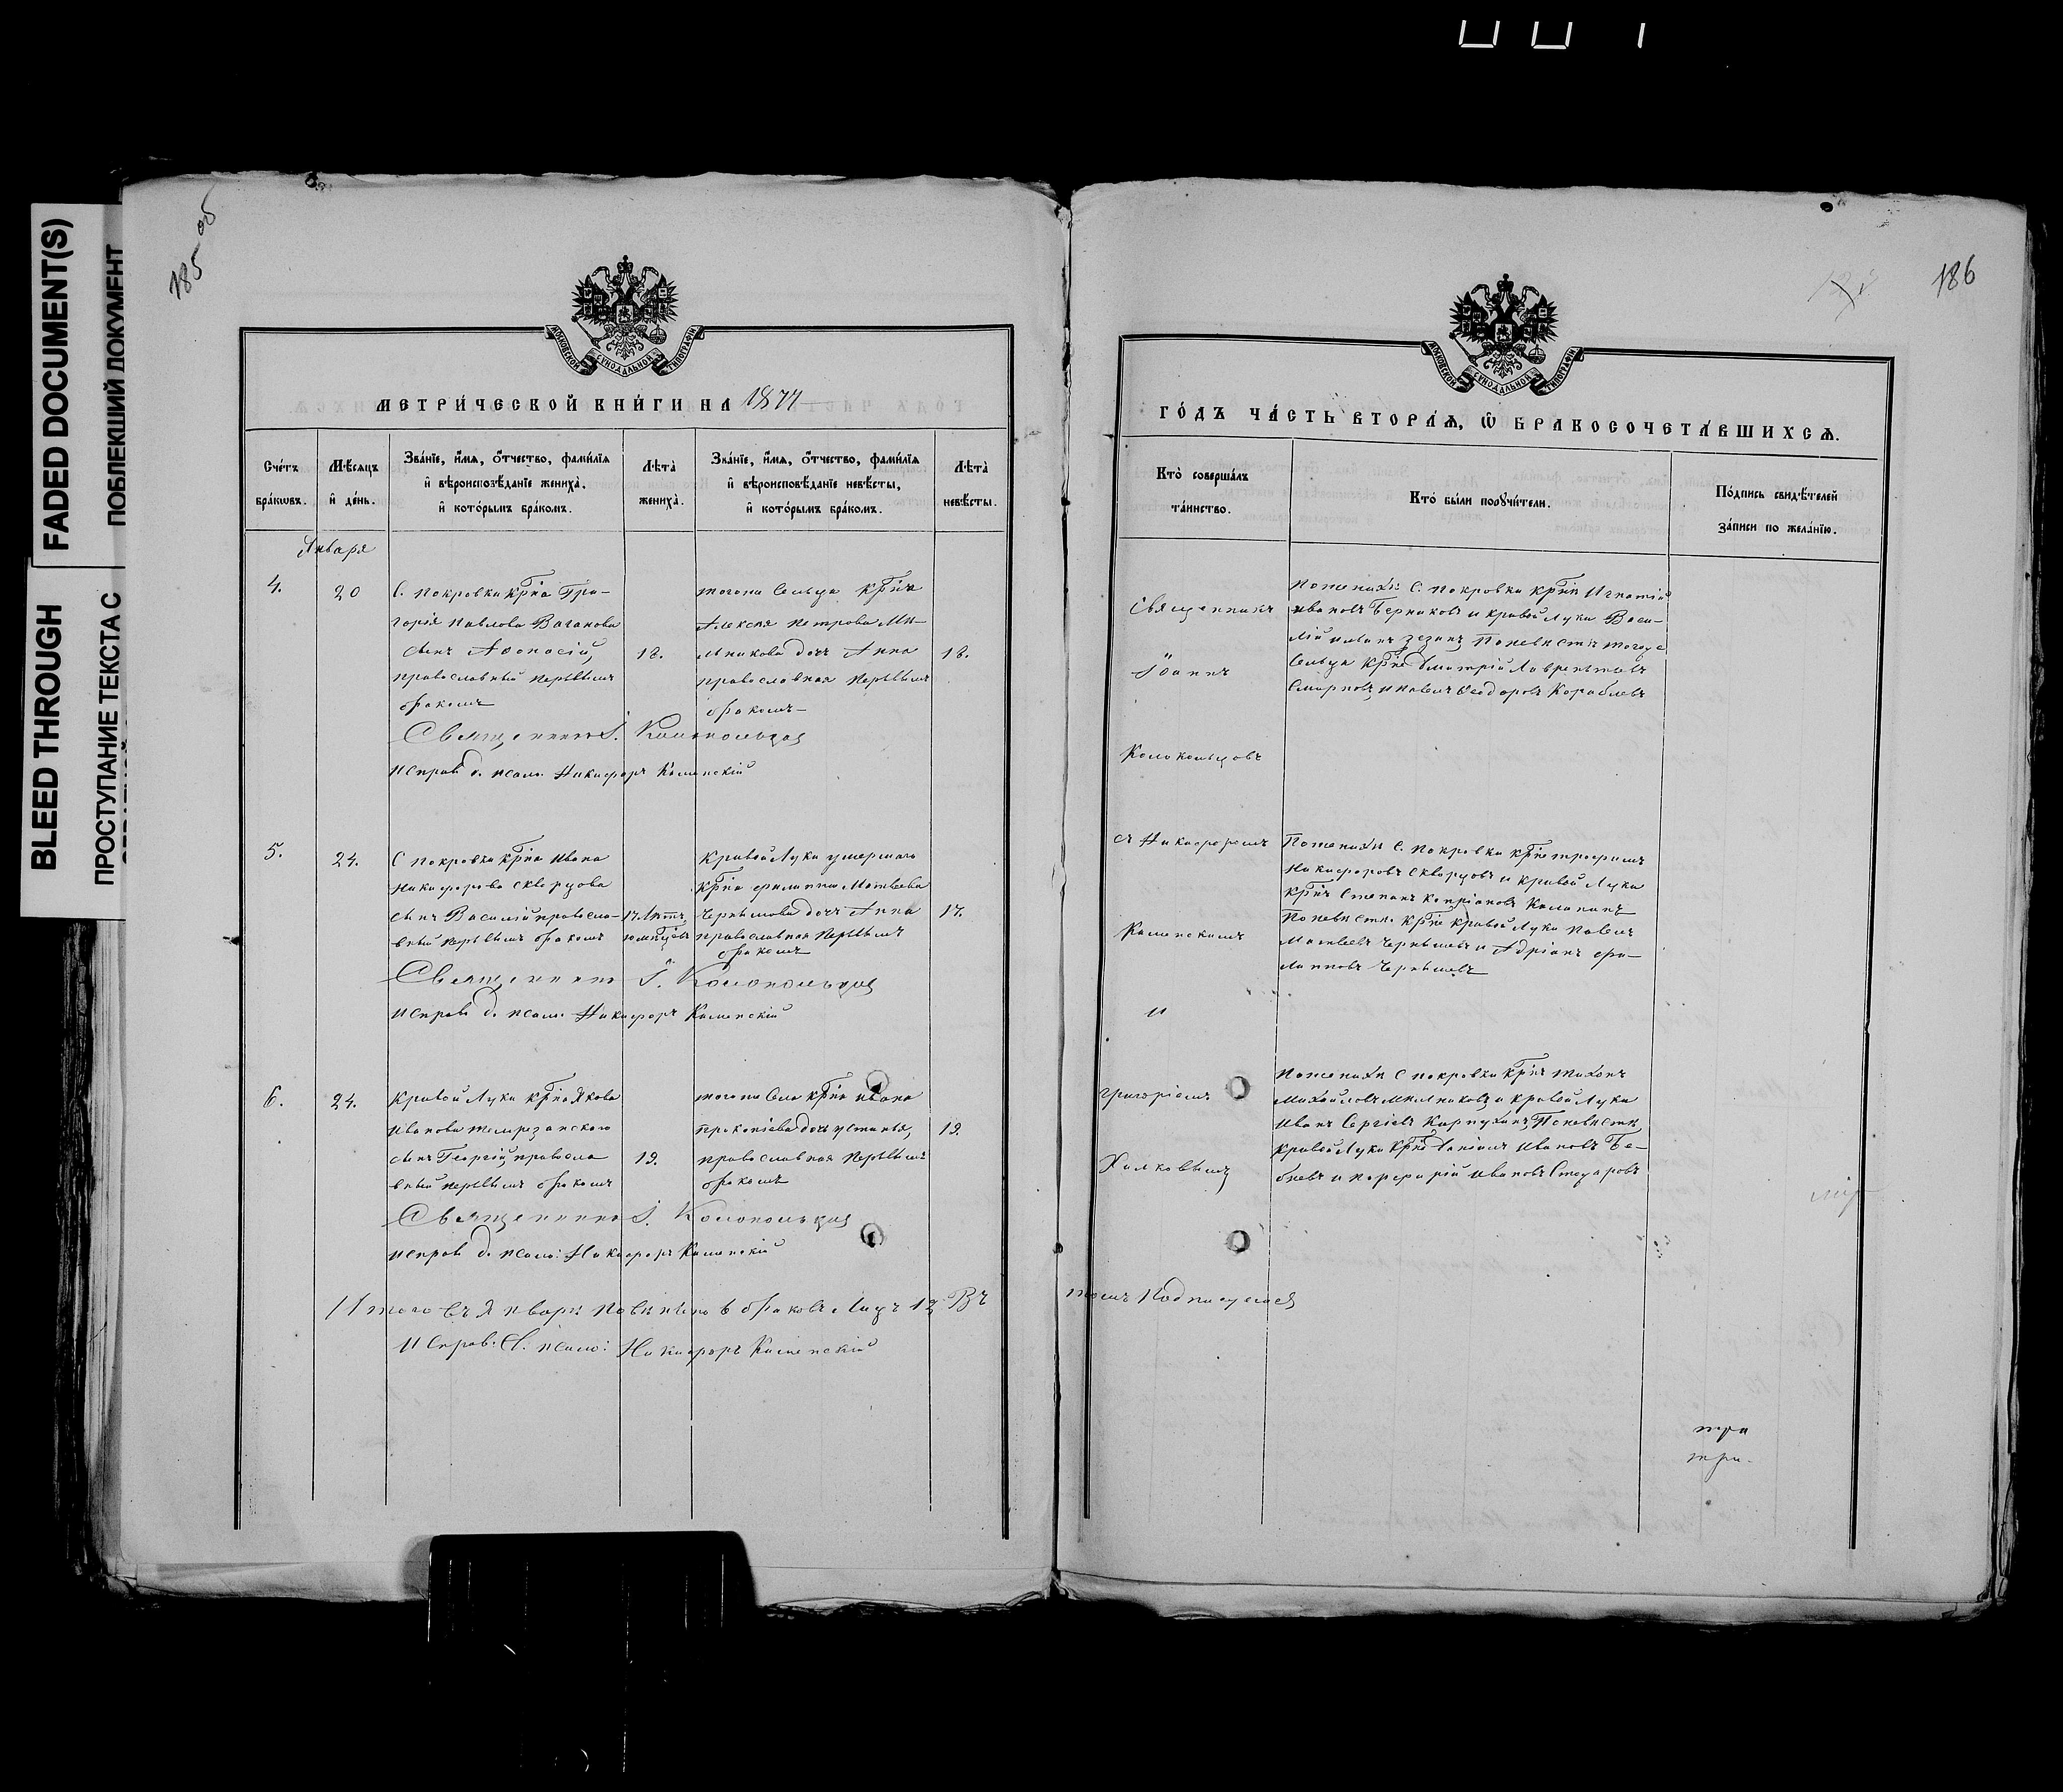 FADED DOCUMENT(S)
ПОБЛЕКШИЙ ДОКУМЕНТ
BLEED THROUGH
ПРОСТУПАНИЕ ТЕКСТА С
185 об
186
МОСКОВСКОЙ СУНОДАЛЬНОЙ ТИПОГРАФІИ
МЕТРИ́ЧЕСКОЙ КНИ́ГИ НА 1877
Сче́тъ бра́кѡвъ.
Мѣ́сяцъ и де́нь.
Зва́нїе, и́мѧ, ѻ́тчество, фами́лїѧ и вѣроисповѣ́данїе жениха̀, и кото́рымъ бра́комъ.
Лѣта̀ жениха̀.
Зва́нїе, и́мѧ, ѻ́тчество, фами́лїѧ и вѣроисповѣ́данїе невѣ́сты, и кото́рымъ бра́комъ.
Лѣта̀ невѣ́сты.
Января
4.
20
С. Покровки крн̃а Гри-
горія Павлова Ваганова
сынъ Аѳонасій,
православный первымъ
бракомъ
18.
тогоже Сельца крн̃а
Алексѣя Петрова Ми-
льникова дочь Анна
православная первымъ
бракомъ
18.
Священникъ І. Колокольцов
Исправ. д. псал. Никифоръ Каменскій
5.
24.
С Покровки крн̃а Ивана
Никифорова Скворцова
сынъ Василій правосла-
вный первымъ бракомъ
17 лѣтъ
Кривой Луки умершаго
крн̃а Филиппа Матвѣева
Чернышова дочь Анна
православная первымъ
бракомъ
17.
Священникъ І. Колокольцов
Исправ. д. псал. Никифоръ Каменскій
6.
24.
Кривой Луки крн̃а Якова
Иванова
сынъ Георгій, правосла
вный первымъ бракомъ
19.
тогоже Села крн̃а Ивана
Прокопіева дочь Устинья,
православная первымъ
бракомъ
19.
Священникъ І. Колокольцов
Исправ. д. псал: Никифоръ Каменскій
Итого въ Январѣ повѣнчано 6 браковъ лицъ 12 Въ
томъ подписуемся
Исправ. д. псал: Никифоръ Каменскій
МОСКОВСКОЙ СУНОДАЛЬНОЙ ТИПОГРАФІИ
ГО́ДЪ ЧА́СТЬ ВТОРА́Ѧ, Ѽ БРАКОСОЧЕТА́ВШИХСѦ.
Кто̀ соверша́лъ та́инство.
Кто̀ бы́ли порꙋчи́тели.
По́дпись свидѣ́телей за́писи по жела́нїю.
Священникъ
Іоаннъ
Колокольцовъ
съ Никифоромъ
Каменскимъ
и
Григоріемъ
Халковымъ
По женихѣ: С. Покровки крн̃е Игнатій
Ивановъ Берников и Кривой Луки Васи-
лій Ивановъ По невѣстѣ тогоже
Сельца крн̃е Димитрій Лаврентьевъ
Смирновъ, и Павелъ Ѳеодоровъ Кораблевъ
По женихѣ С. Покровки крн̃е Трофимъ
Никифоровъ Скворцовъ и Кривой Луки
крн̃ъ Степанъ Кипріановъ
По невѣстѣ. крн̃е Кривой Луки Павелъ
Матвѣевъ Чернышевъ и Адріанъ Фи-
липповъ Чернышевъ
По женихѣ С Покровки крн̃ъ Тихонъ
Михайловъ Мильников и Кривой Луки
Иванъ Сергіевъ По невѣстѣ,
Кривой Луки крн̃е Данилъ Ивановъ Бе-
бневъ и Порфирій Ивановъ Столяровъ
три
три.